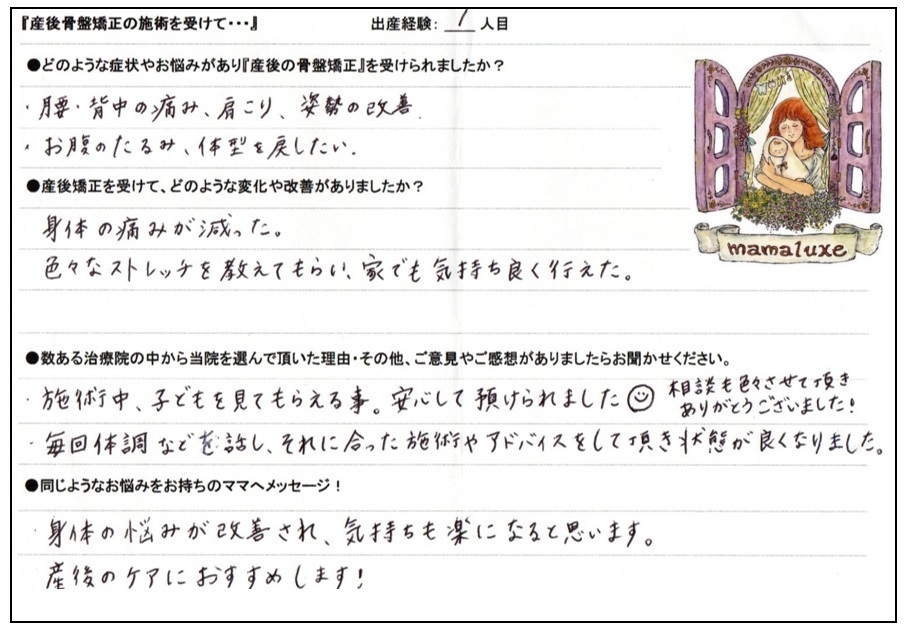 『産後骨盤矯正の施術を受けて・・・』 出産経験: 1 人目
●どのような症状やお悩みがあり『産後の骨盤矯正』を受けられましたか？
・腰・背中の痛み、肩こり、姿勢の改善.
・お腹のたるみ、体型を戻したい.
●産後矯正を受けて、どのような変化や改善がありましたか？
身体の痛みが減った。
色々なストレッチを教えてもらい、家でも気持ち良く行えた。
mamaluxe
●数ある治療院の中から当院を選んで頂いた理由・その他、ご意見やご感想がありましたらお聞かせください。
・施術中、子どもを見てもらえる事。安心して預けられました
相談も色々させて頂き
ありがとうございました！
・毎回体調などを話し、それに合った施術やアドバイスをして頂き状態が良くなりました。
●同じようなお悩みをお持ちのママへメッセージ！
・身体の悩みが改善され、気持ちも楽になると思います。
産後のケアにおすすめします！